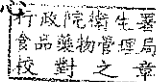 心
行政院衛生署
食品藥物管理局
校對之章